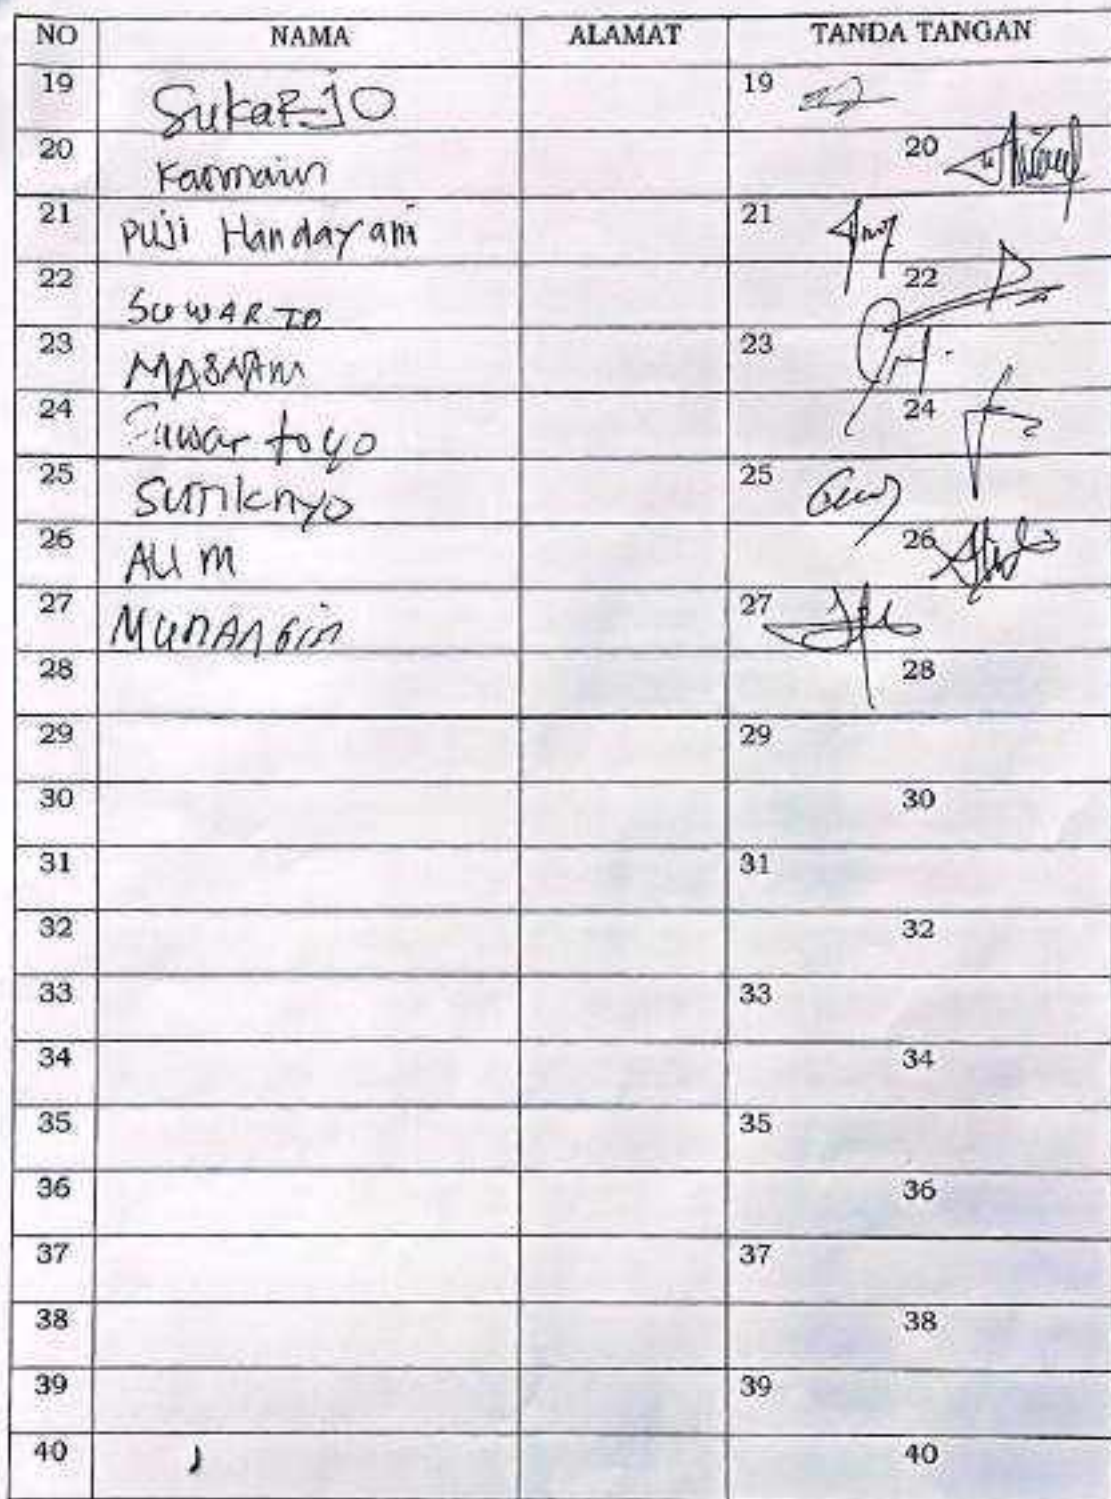 NO NAMA ALAMAT TANDA TANGAN
19 SukaRJO 19
20 Karmain 20
21 Puji Handayani 21
22 SUWARTO 22
23 23
24 Suwartoyo 24
25 25
26 ALIM 26
27 27
28 28
29 29
30 30
31 31
32 32
33 33
34 34
35 35
36 36
37 37
38 38
39 39
40 40